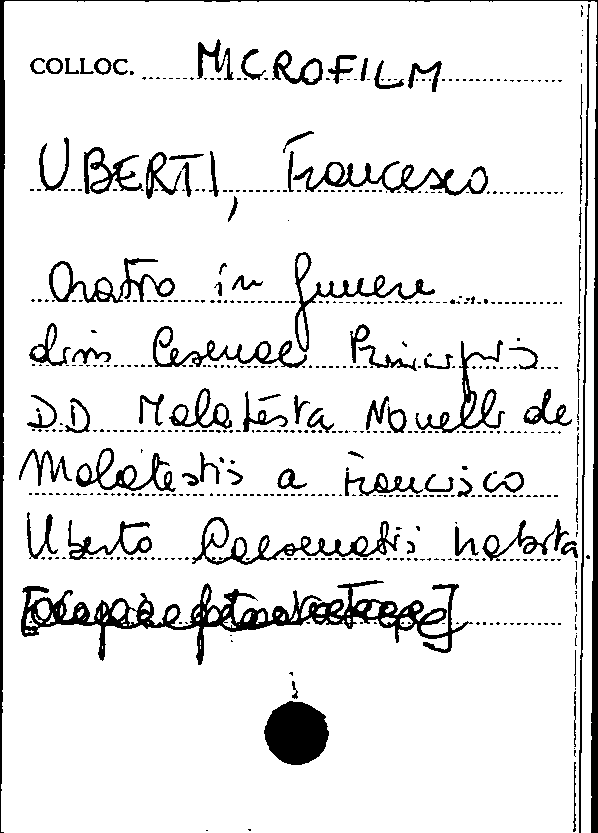 COLLOC. MICROFILM
UBERTI, Francesco
Oratio in funere ...
divi Cesenae Principis
DD Malatesta Novelli de
Malatestis a Francisco
Uberto Caesenatis habita.